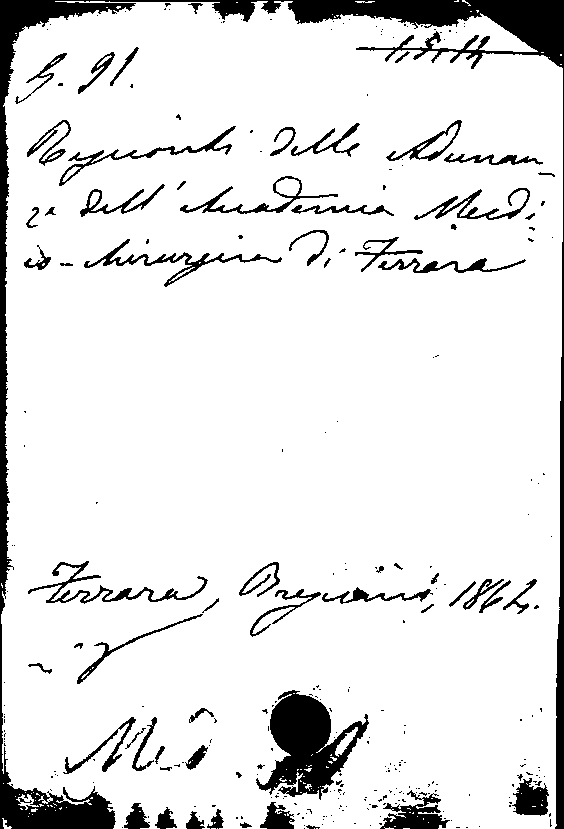 G. 91.
Resoconti delle Adunan-
ze dell'Accademia Medi
co-chirurgica di Ferrara
Ferrara, Bresciani, 1862.
Med.